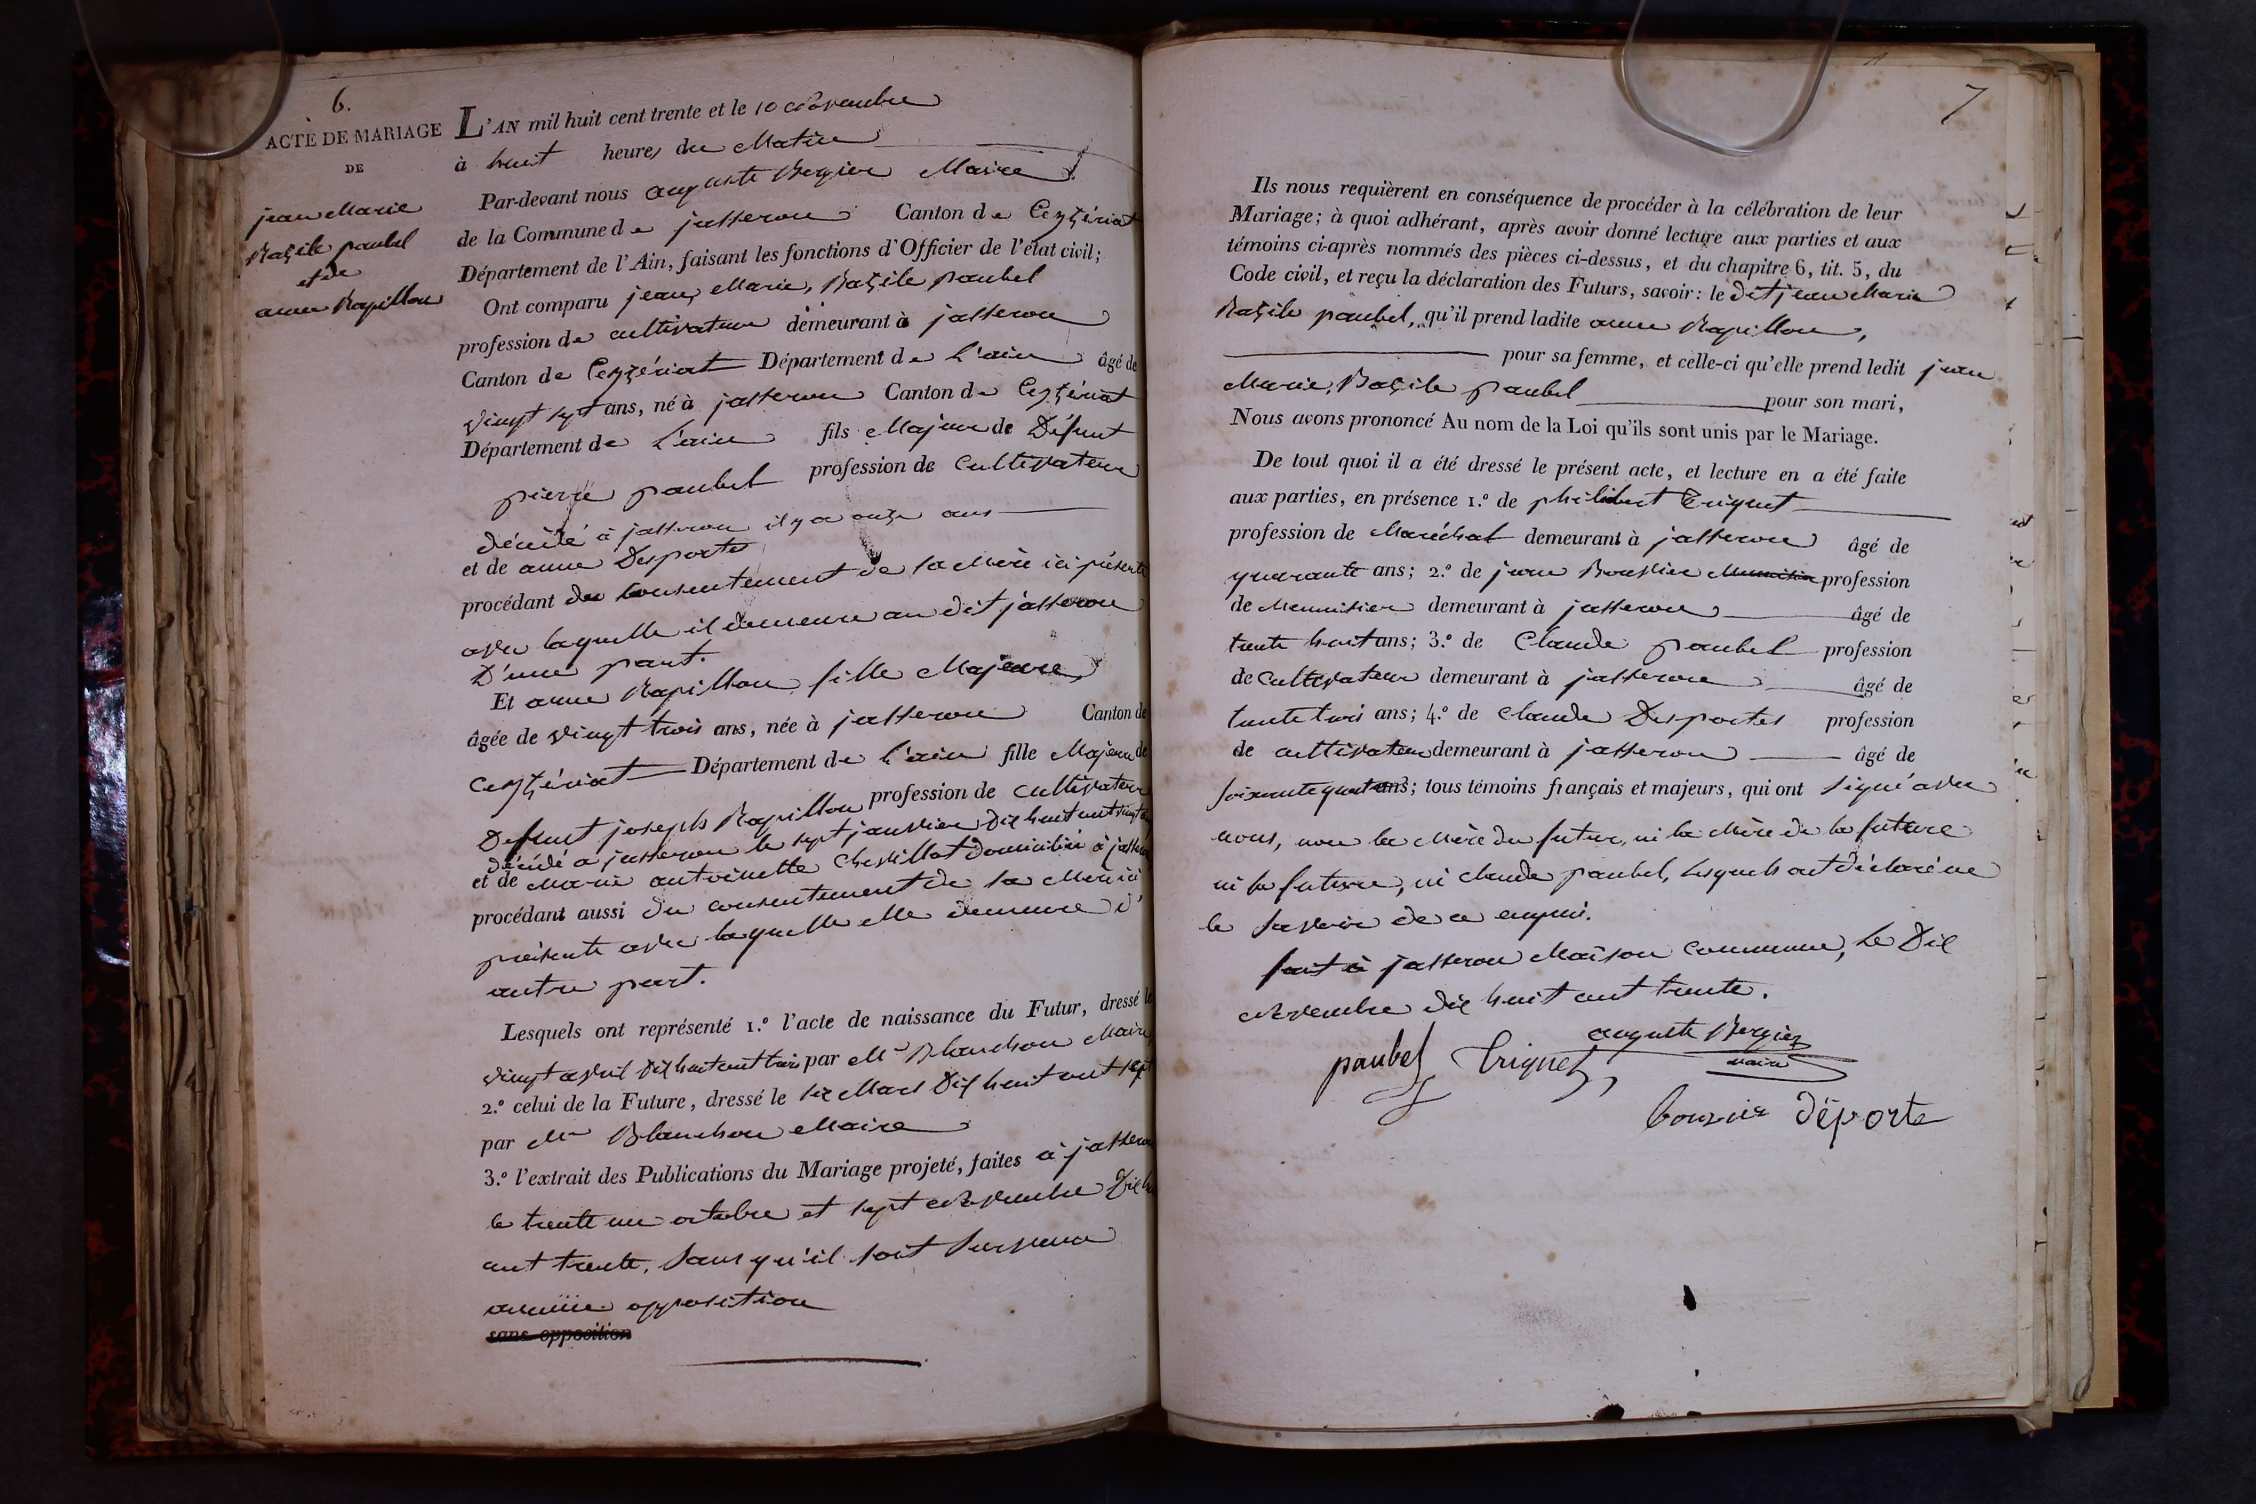 6.
ACTE DE MARIAGE
DE
jean Marie
Bazile paubel
et de
anne Rapillon
L'AN mil huit cent trente et le 10 Novembre
à huit heures du Matin
Par-devant nous auguste Bergier Maire
de la Commune de jasseron Canton de Ceyzériat
Département de l'Ain, faisant les fonctions d'Officier de l'état civil;
Ont comparu jean, Marie, Bazile paubel
profession de cultivateur demeurant à jasseron
Canton de Ceyzériat Département de L'ain âgé de
vingt sept ans, né à jasseron Canton de Ceyzériat
Département de L'ain fils Majeur de Défunt
pierre paubel profession de Cultivateur
décédé à jasseron il y a onze ans
et de anne Desportes
procédant du consentement de sa Mère ici présente
avec laquelle il demeure au dit jasseron
D'une part.
Et anne Rapillon fille Majeure,
âgée de vingt trois ans, née à jasseron Canton de
Ceyzériat Département de L'ain fille Majeure de
Défunt joseph Rapillon profession de Cultivateur
décédé a jasseron le sept janvier Dix huit cent vingt
et de Marie antoinette Chevillot Domiciliée à jasseron
procédant aussi du consentement de sa Mère ici
présente avec laquelle elle demeure d'
autre part.
Lesquels ont représenté 1.º l'acte de naissance du Futur, dressé le
vingt avril Dix huit cent trois par Mr Blanchon Maire
2.º celui de la Future, dressé le six Mars Dix huit cent sept
par Mr Blanchon Maire
3.º l'extrait des Publications du Mariage projeté, faites à jasseron
le trente un octobre et sept Novembre Dix h
cent trente, sans qu'il soit survenu
aucune opposition
sans opposition
7
Ils nous requièrent en conséquence de procéder à la célébration de leur
Mariage; à quoi adhérant, après avoir donné lecture aux parties et aux
témoins ci-après nommés des pièces ci-dessus, et du chapitre 6, tit. 5, du
Code civil, et reçu la déclaration des Futurs, savoir: le dit jean Marie
Bazile paubel, qu'il prend ladite anne Rapillon,
pour sa femme, et celle-ci qu'elle prend ledit jean
Marie, Bazile paubel pour son mari,
Nous avons prononcé Au nom de la Loi qu'ils sont unis par le Mariage.
De tout quoi il a été dressé le présent acte, et lecture en a été faite
aux parties, en présence 1.º de philibert Triquet
profession de Maréchal demeurant à jasseron âgé de
quarante ans; 2.º de jean Bouvier Menuisier profession
de Menuisier demeurant à jasseron âgé de
trente huit ans; 3.º de Claude paubel profession
de Cultivateur demeurant à jasseron âgé de
trente trois ans; 4.º de Claude Desportes profession
de cultivateur demeurant à jasseron âgé de
soixante quatre ans; tous témoins français et majeurs, qui ont signé avec
nous, non la Mère du futur, ni la Mère de la future
ni la future, ni claude paubel, lesquels ont déclaré ne
le savoir de ce enquis.
fait à jasseron Maison Commune, Le Dix
Novembre dix huit cent trente.
auguste Bergier
maire
paubel triquet
bouvier déporte